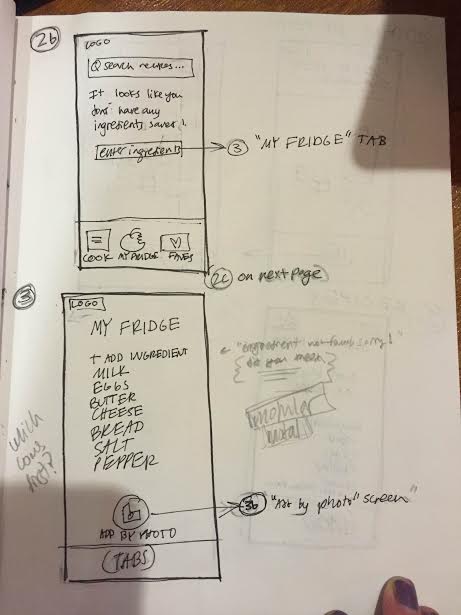 2b
LOGO
search recipes...
It looks like you
don't have any
ingredients saved!
enter ingredients
3 "MY FRIDGE" TAB
COOK MY FRIDGE FAVES
2c on next page
3
LOGO
MY FRIDGE
+ ADD INGREDIENT
MILK
EGGS
BUTTER
CHEESE
BREAD
SALT
PEPPER
"ingredient not found sorry!
did you mean
which
comes
first?
3b "Add by photo" screen"
ADD BY PHOTO
(TABS)